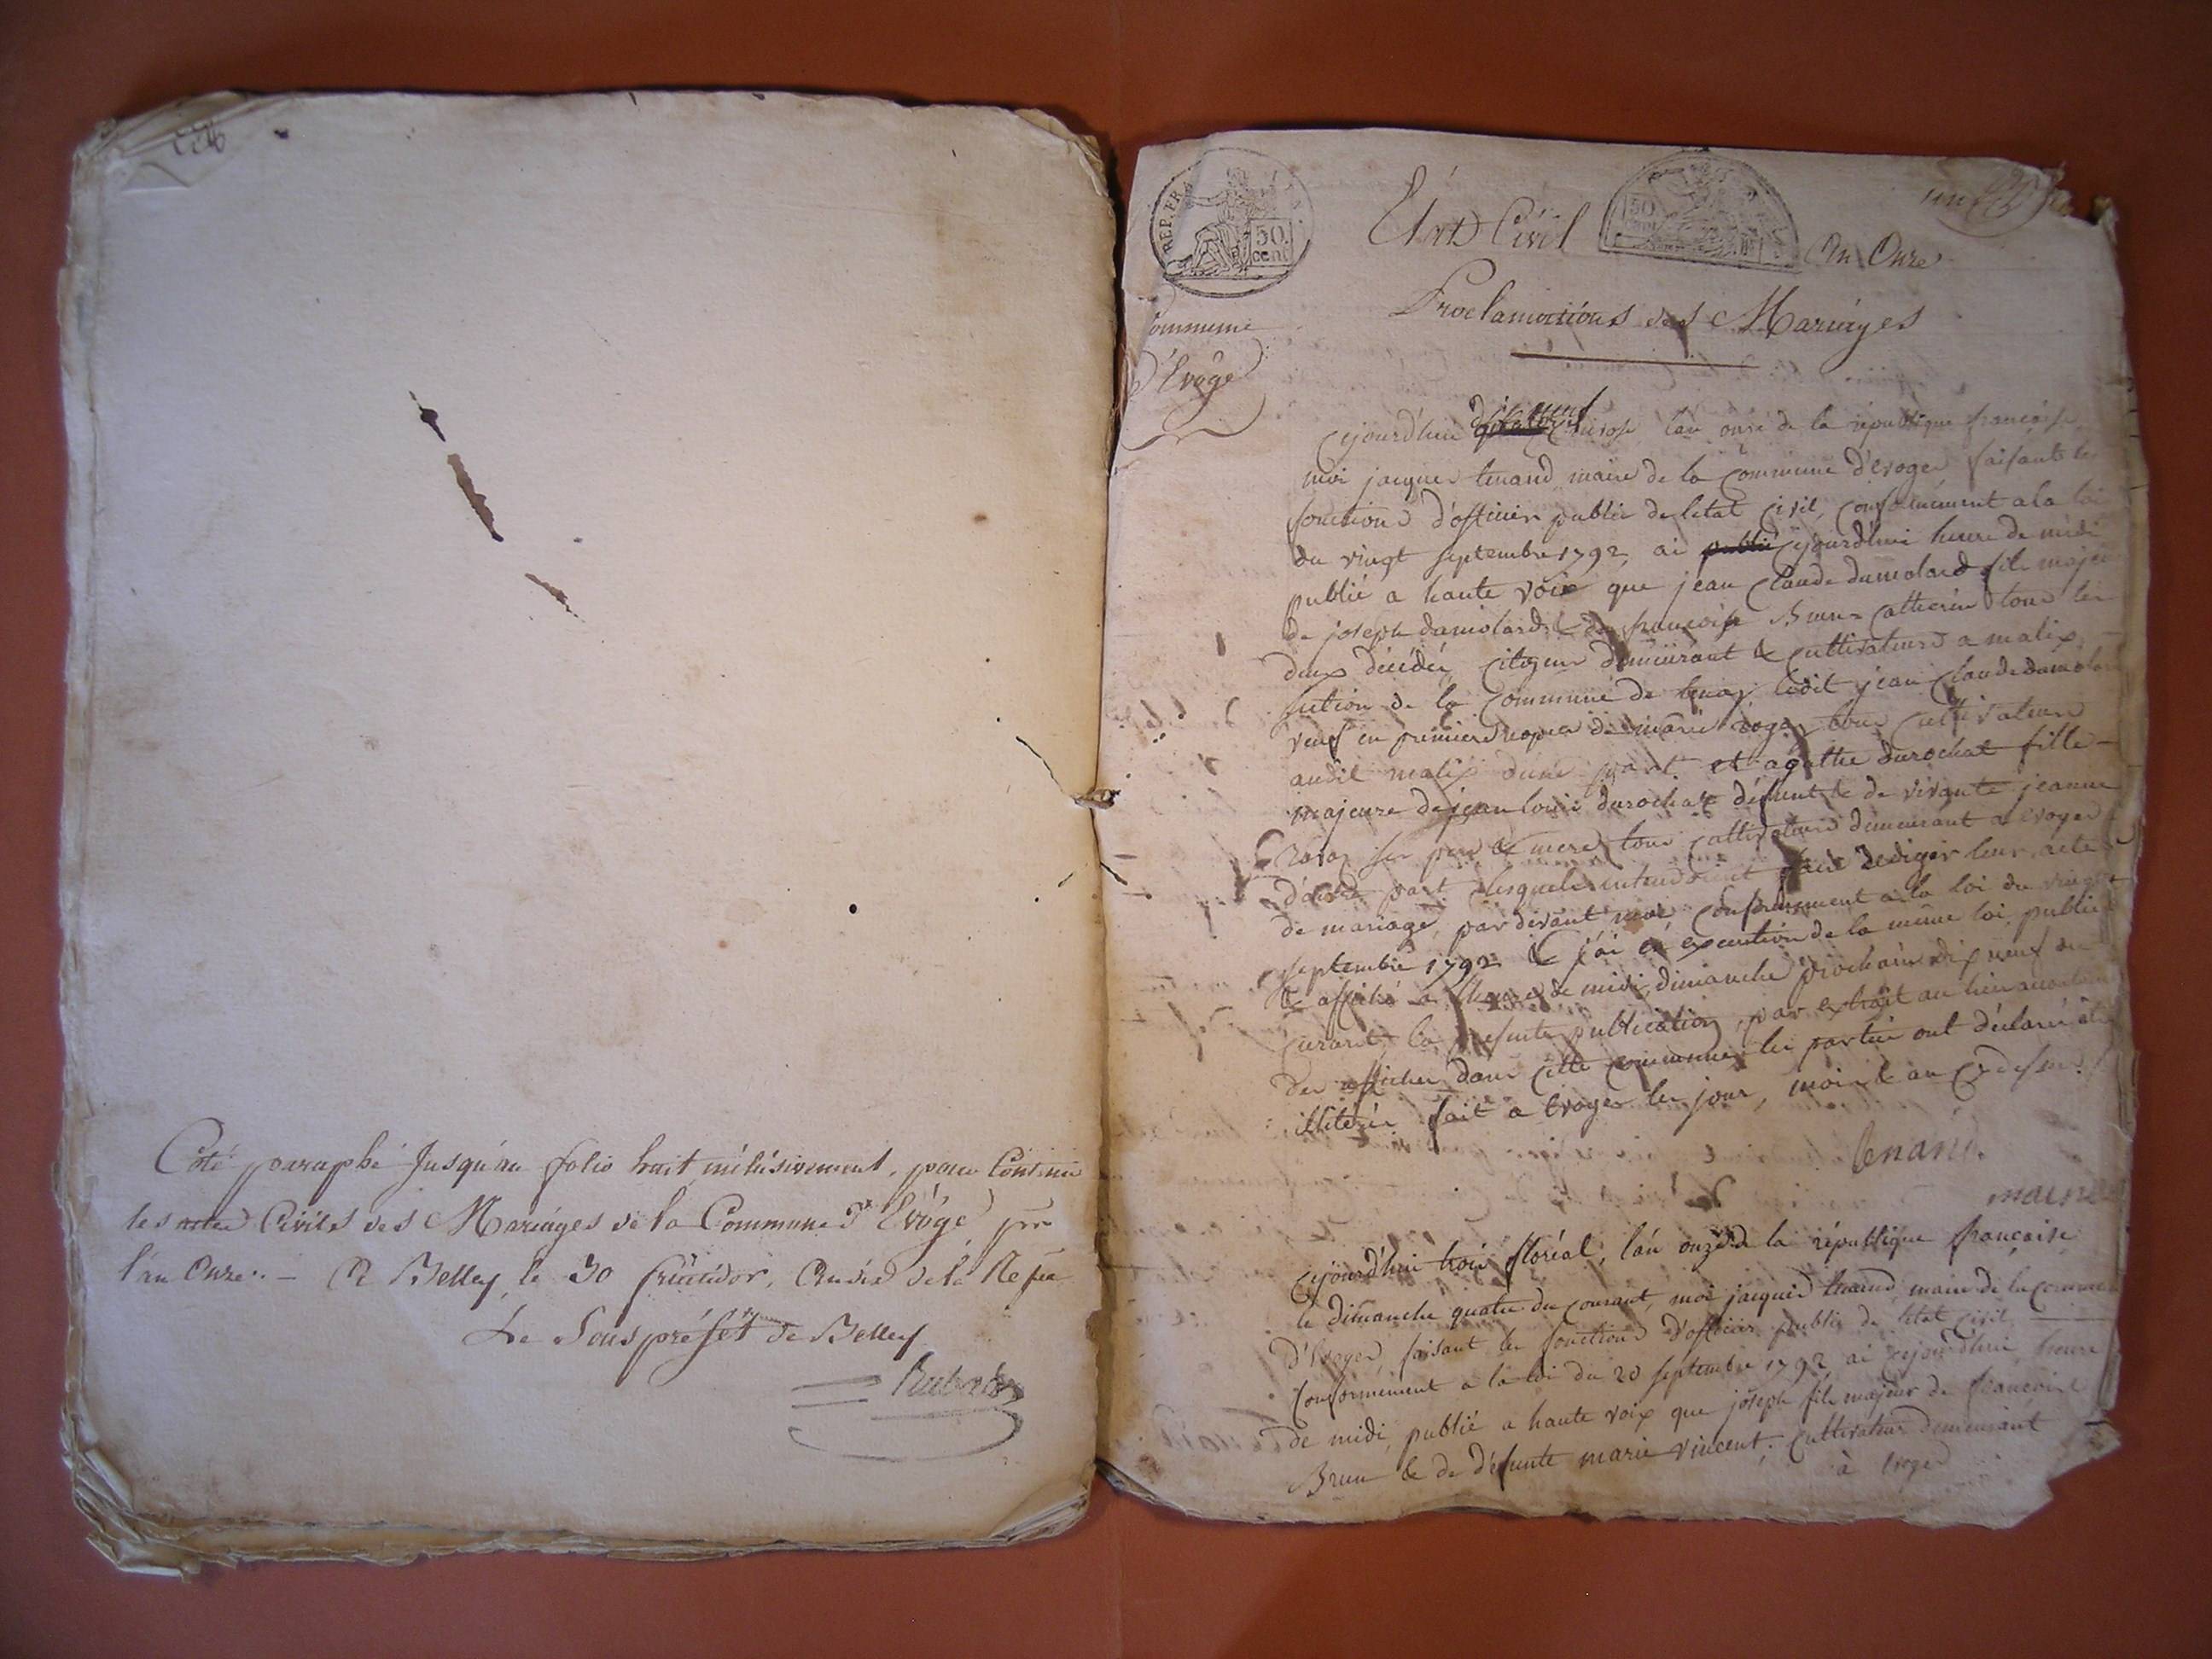 Coté paraphé jusqu'au folio huit inclusivement, pour Contenir
les actes Civils des Mariages de la Commune d'Evôge pr
l'an Onze. — A Belley, le 30 fructidor, an dix de la Rep
Le Souspréfét de Belley
REP. FRA
50 cent
Etat Civil
50
An Onze
Proclamations des Mariages
Commune
d'Evôge
Cejourd'hui dix neuf l'an onze de la republique francaise
moi jacques tenand maire de la Commune d'evoges faisant les
fonctions d'officier public de letat civil, conformément a la loi
du vingt septembre 1792, ai publié cejourd'hui heure de midi
publié a haute voix que jean Claude dumolard fils majeur
de joseph dumolard & de francoise Brun Catherin tous les
deux décédés, citoyens demeurant & cultivateurs a malix
section de la Commune de tenay, ledit jean Claude dumolard
veuf en premiere nopces de marie roger tous cultivateurs
audit malix d'une part. et agathe durochat fille
majeure de jean louis durochat défunt & de vivante jeanne
ses pere & mere tous cultivateurs demeurant a evoges
d'autre part lesquels entendroient faire rediger leur acte
de mariage, par devant moi conformement a la loi du vingt
septembre 1792 & j'ai en execution de la même loi, publié
& affiché a l'heure de midi, dimanche prochain dix neuf du
courant la presente publication, par extrait au lieu accoutumé
des affiches dans cette commune, les parties ont déclaré être
illiterés fait a Evoges les jour, mois & an cy dessus.
tenand
maire
Cejourd'hui trois floréal, l'an onze de la république française
le dimanche quatre du courant, moi jacques tenand, maire de la commune
d'Evoges, faisant les fonctions d'officier public de letat civil,
Conformément a la loi du 20 septembre 1792 ai cejourd'hui heure
de midi, publié a haute voix que joseph fils majeur de francois
Brun & de défunte marie vincent, cultivateur demeurant
à Evoges